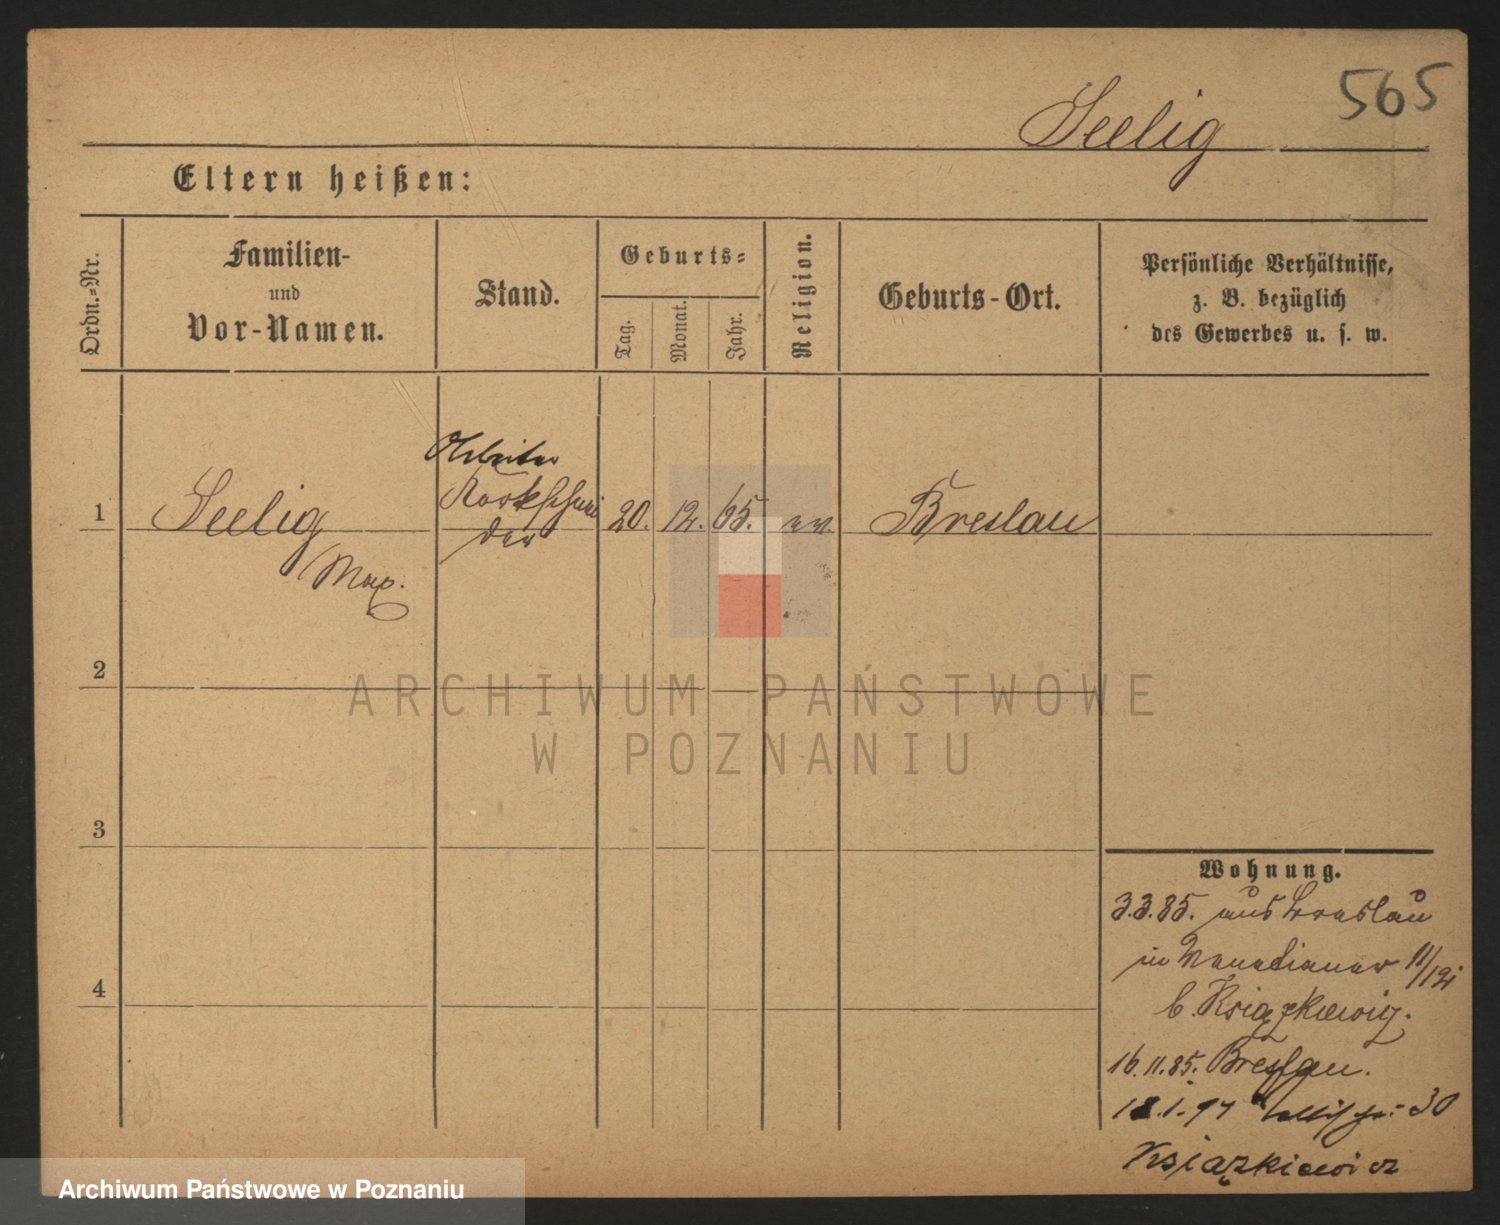 565
Seelig
Eltern heißen:
Ordn.-Nr.
Familien-
und
Vor-Namen.
Stand.
Geburts-
Tag.
Monat.
Jahr.
Religion.
Geburts-Ort.
Persönliche Verhältnisse,
z. B. bezüglich
des Gewerbes u. s. w.
Arbeiter
1 Seelig Korkschnei 20. 12. 65. ev. Breslau
der
Max.
2
ARCHIWUM PAŃSTWOWE
W POZNANIU
3
4
Wohnung.
3.3.85. aus Breslau
in 11/12
b. Książkiewig.
16.11.85. Breslau.
18.1.97 30
Książkiewicz
Archiwum Państwowe w Poznaniu